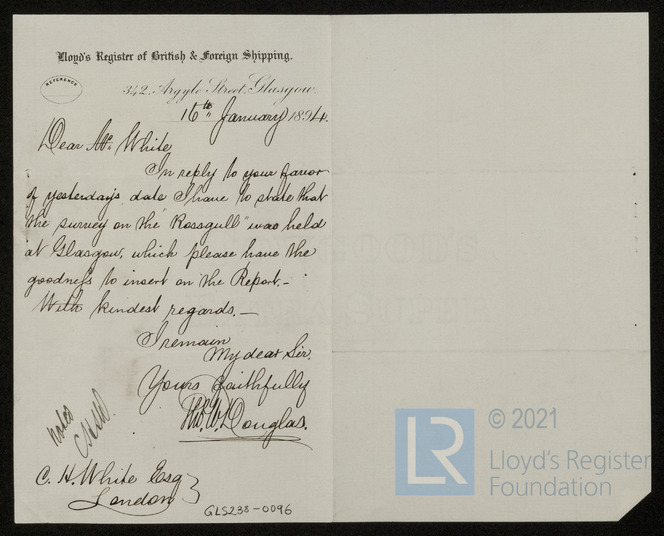 Lloyd's Register of British & Foreign Shipping.
REFERENCE
342, Argyle Street, Glasgow.
16th January 1894.
Dear Mr. White
In reply to your favor
of yesterday's date I have to state that
the survey on the "Rossgull" was held
at Glasgow, which please have the
goodness to insert on the Report.-
With kindest regards.-
I remain
My dear Sir.
Yours faithfully
Thos. W. Douglas.
Noted
C.H.W.
C. H. White Esq
London
GLS238-0096
LR
© 2021
Lloyd's Register
Foundation